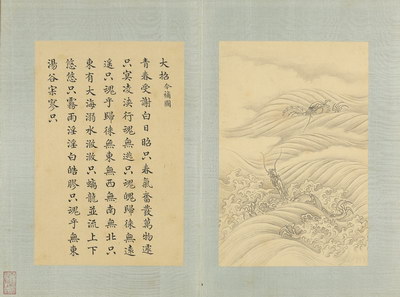 大招 今補圖
青春受謝白日昭只春氣奮發萬物遽
只冥凌浹行魂無逃只魂魄歸徠無遠
遙只魂乎歸徠無東無西無南無北只
東有大海溺水浟浟只螭龍並流上下
悠悠只霧雨淫淫白皓膠只魂乎無東
湯谷宗寥只